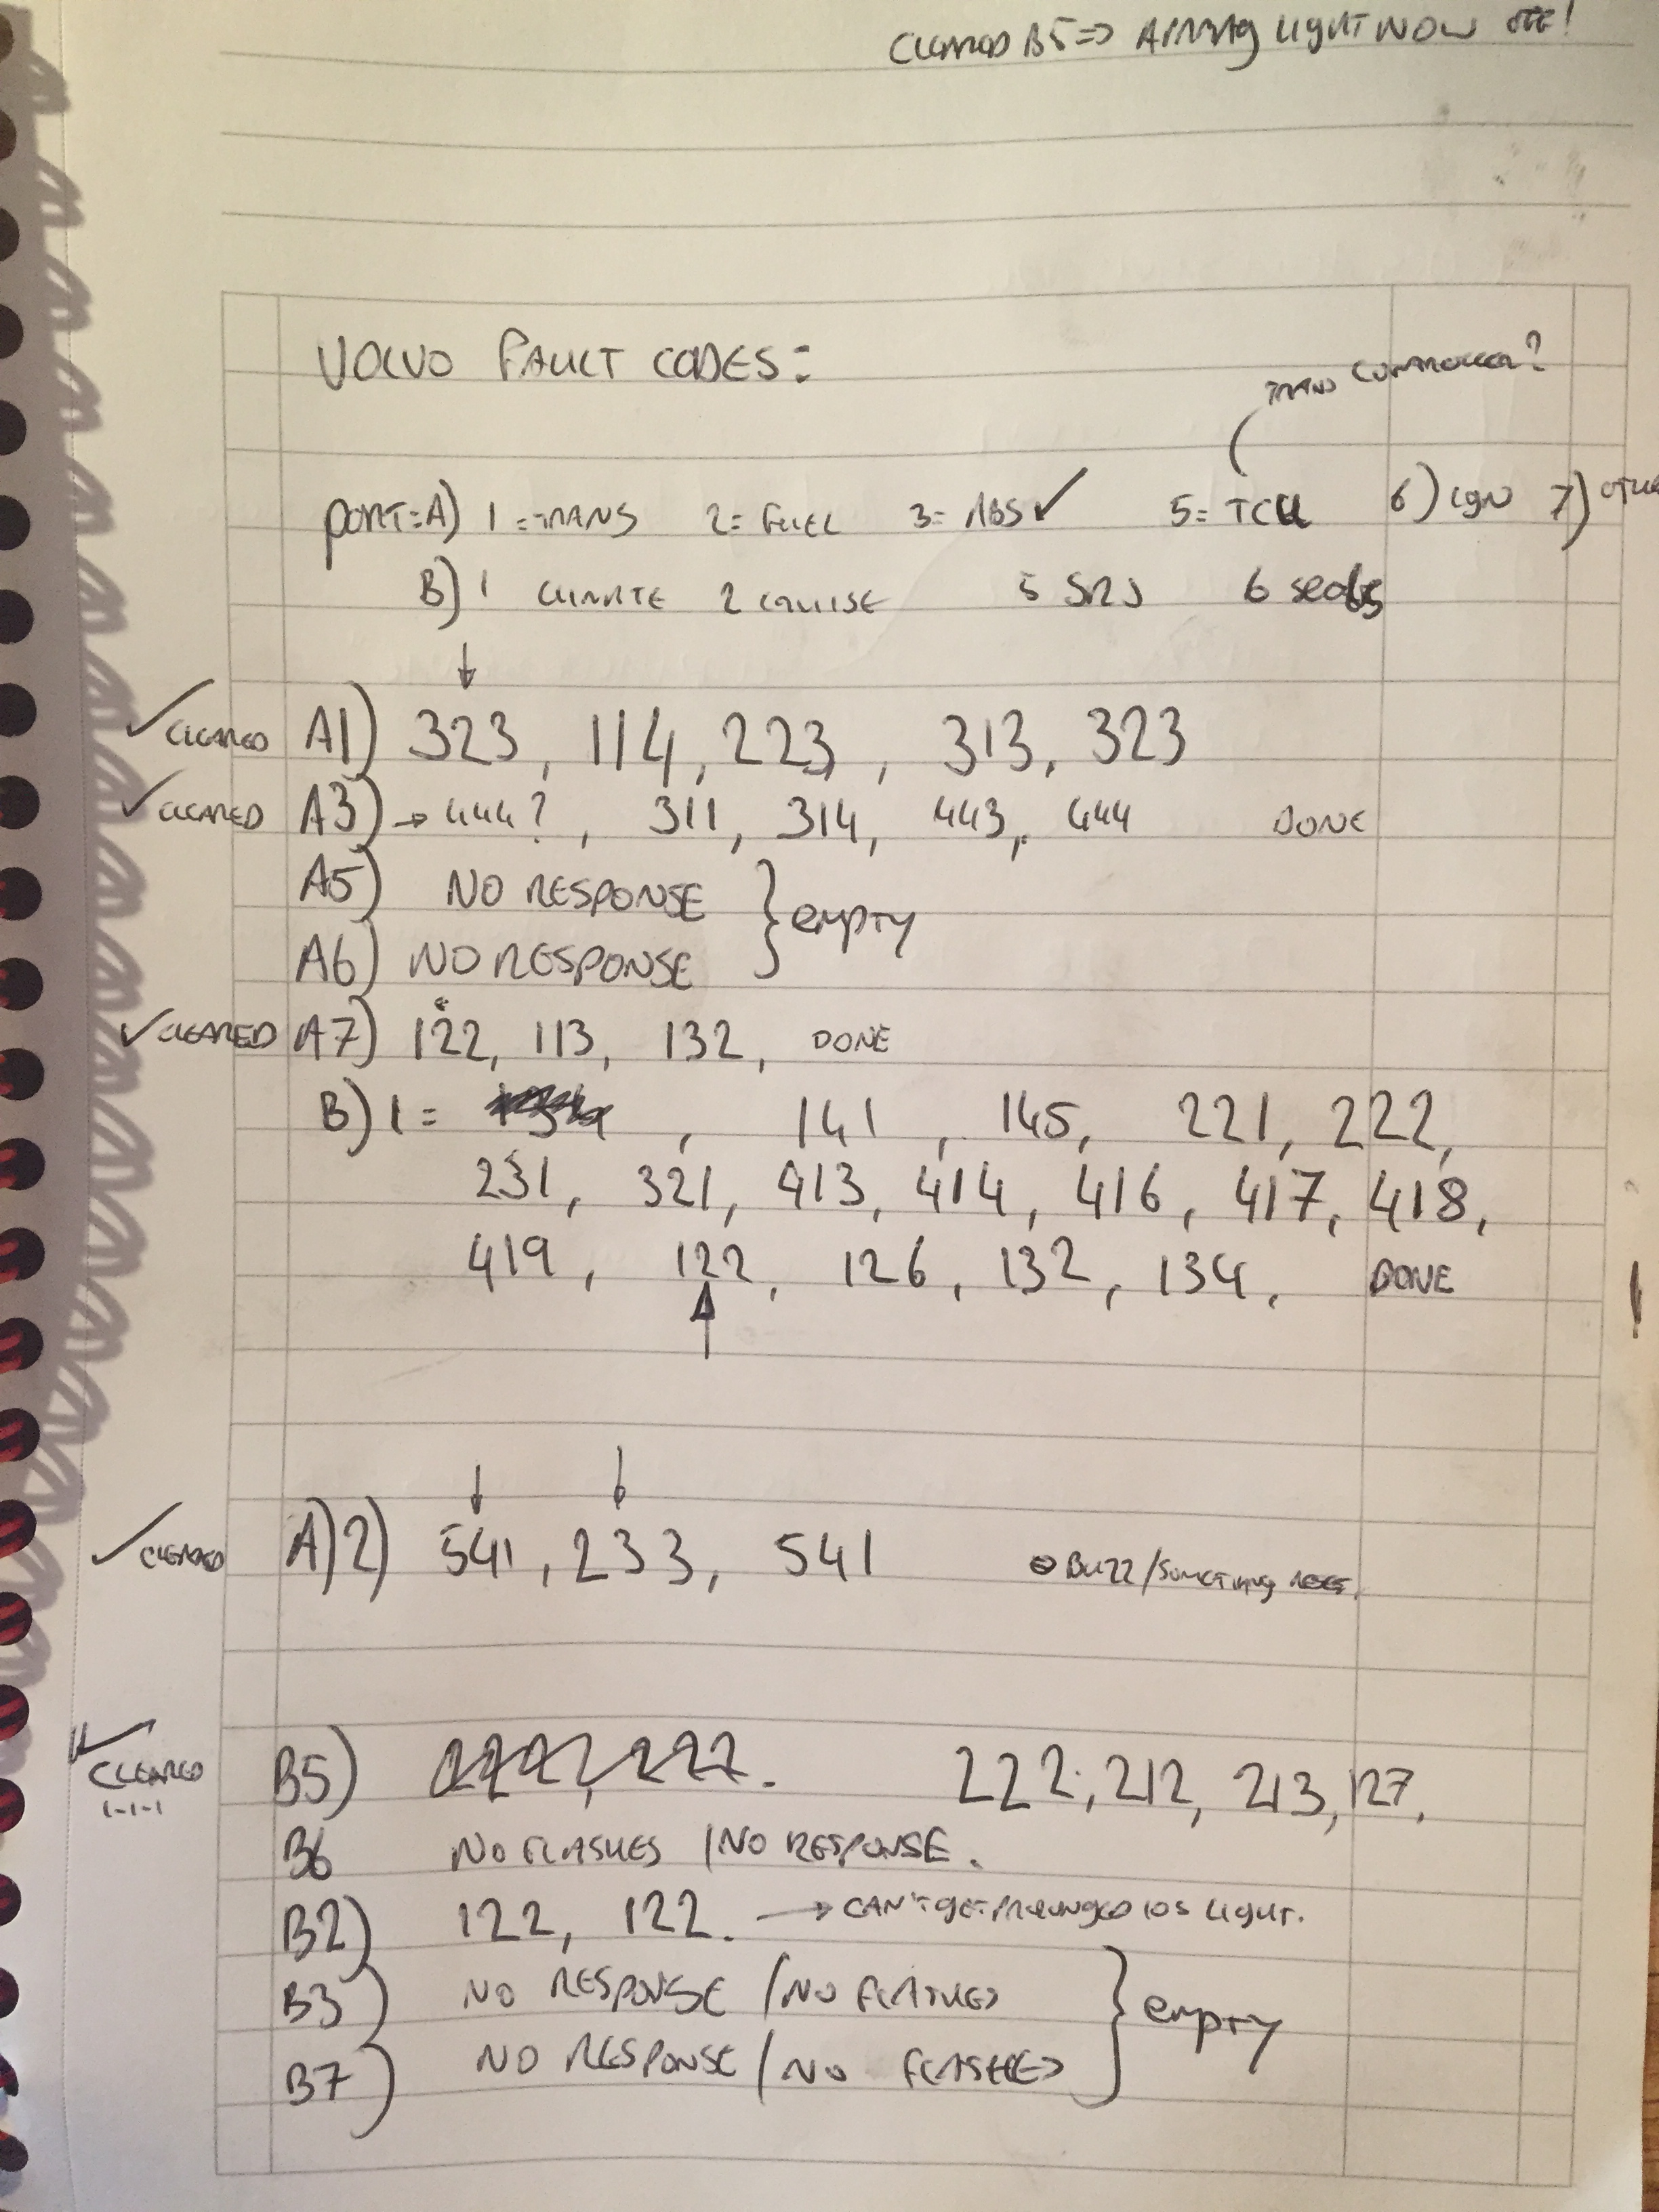 CLEARED B5 => AIRBAG LIGHT NOW OFF!
VOLVO FAULT CODES:
TRANS CONTROLLER?
PORT: A) 1 = TRANS 2 = FUEL 3 = ABS ✓ 5 = TCU 6) IGN 7)
B) 1 CLIMATE 2 CRUISE 5 SRS 6 seats
↓
✓ CLEARED A1) 323, 114, 223, 313, 323
✓ CLEARED A3) → 444?, 311, 314, 443, 444 DONE
A5) NO RESPONSE } empty
A6) NO RESPONSE
✓ CLEARED A7) 122, 113, 132, DONE
B) 1 = , 141, 145, 221, 222,
231, 321, 413, 414, 416, 417, 418,
419, 122, 126, 132, 134, DONE
↑
↓ ↓
✓ CLEARED A)2) 541, 233, 541 BUZZ/SOMETHING
✓ CLEARED 1-1-1 B5) 222, 212, 213, 127,
B6 NO FLASHES / NO RESPONSE.
B2) 122, 122. → CAN'T GET PROLONGED LIGHT.
B3) NO RESPONSE / NO FLASHES } empty
B7) NO RESPONSE / NO FLASHES